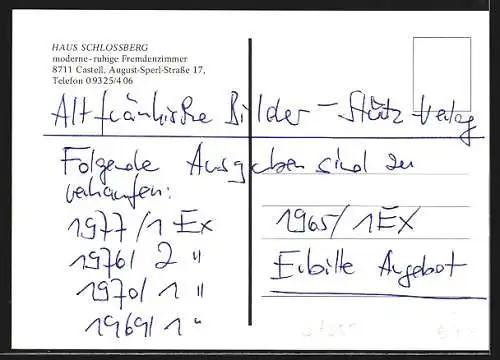 HAUS SCHLOSSBERG
moderne-ruhige Fremdenzimmer
8711 Castell, August-Sperl-Straße 17,
Telefon 09325/406
Altfränkische Bilder - Stürtz-Verlag
Folgende Ausgaben sind zu
verkaufen:
1977/1 Ex
1976/ 2 "
1970/ 1 "
1969/ 1 "
1965/1 EX
Erbitte Angebot